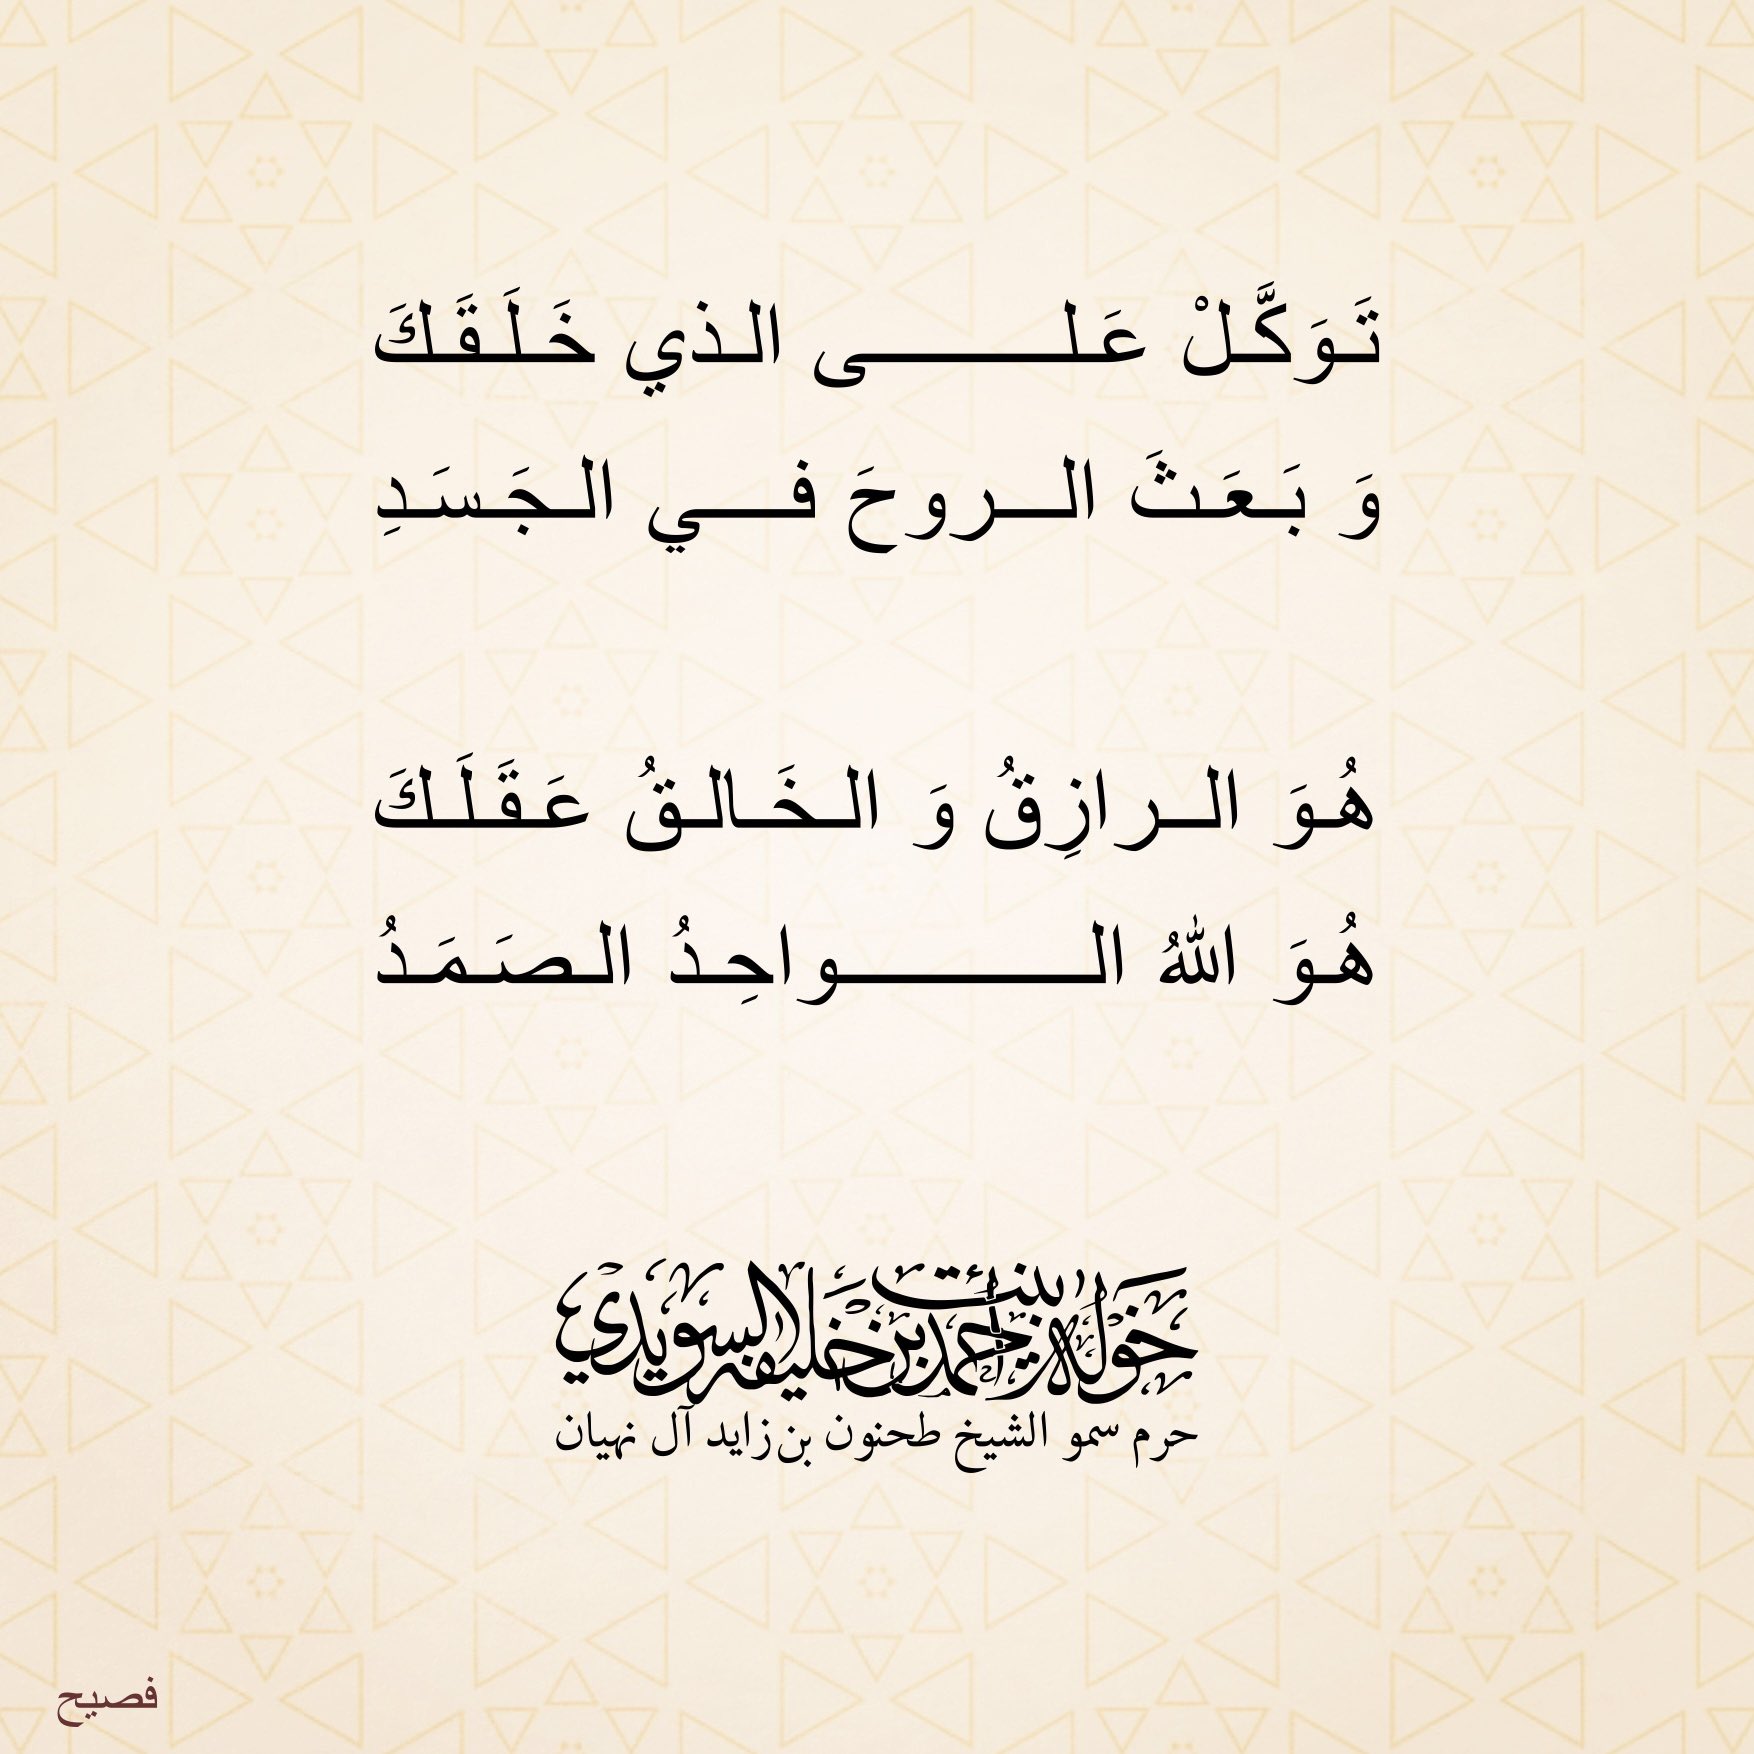 تَوَكَّلْ عَلـــــى الذي خَلَقَكَ
وَ بَعَثَ الـــروحَ فـــي الجَسَدِ
هُوَ الـــرازِقُ وَ الخَالقُ عَقَلَكَ
هُوَ اللهُ الــــــواحِدُ الصَمَدُ
خولة بنت أحمد بن خليفة السويدي
حرم سمو الشيخ طحنون بن زايد آل نهيان
فصيح